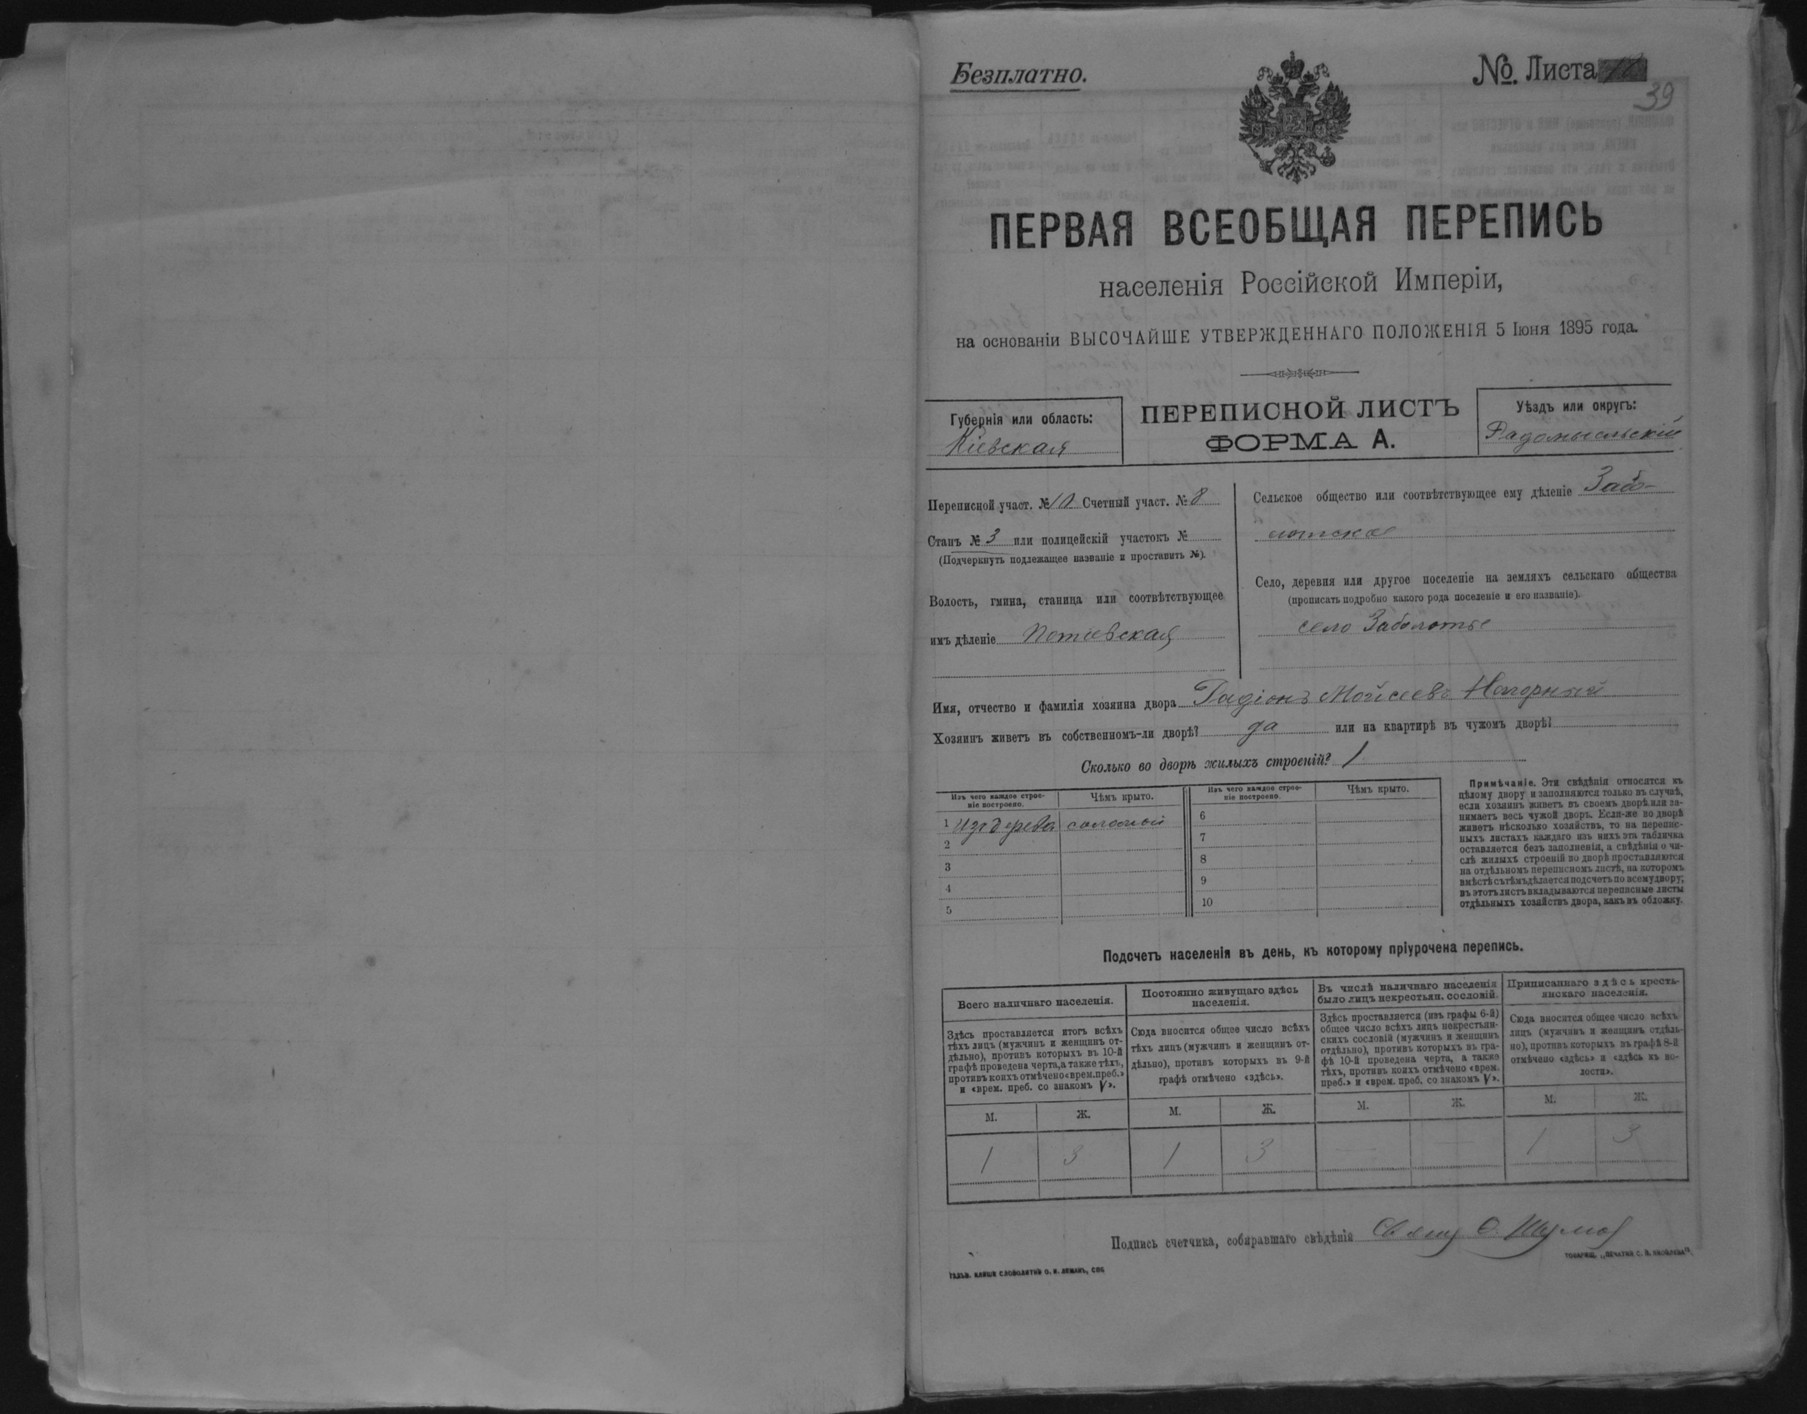 Безплатно.
№. Листа
39
ПЕРВАЯ ВСЕОБЩАЯ ПЕРЕПИСЬ
населенія Россійской Имперіи,
на основаніи ВЫСОЧАЙШЕ УТВЕРЖДЕННАГО ПОЛОЖЕНІЯ 5 Іюня 1895 года.
Губернія или область:
Кіевская
ПЕРЕПИСНОЙ ЛИСТЪ
ФОРМА А.
Уѣздъ или округъ:
Радомысльскій
Переписной участ. № 10 Счетный участ. № 8
Станъ № 3 или полицейскій участокъ №
(Подчеркнуть подлежащее названіе и проставить №).
Волость, гмина, станица или соотвѣтствующее
имъ дѣленіе Потіевская
Сельское общество или соотвѣтствующее ему дѣленіе Забо-
лотское
Село, деревня или другое поселеніе на земляхъ сельскаго общества
(прописать подробно какого рода поселеніе и его названіе).
село Заболотье
Имя, отчество и фамилія хозяина двора Радіонъ Мойсеевъ Нагорный
Хозяинъ живетъ въ собственномъ-ли дворѣ? да или на квартирѣ въ чужомъ дворѣ?
Сколько во дворѣ жилыхъ строеній? 1
Изъ чего каждое строе-
ніе построено.
Чѣмъ крыто.
Изъ чего каждое строе-
ніе построено.
Чѣмъ крыто.
1 изъ дерева соломой
2
3
4
5
6
7
8
9
10
Примѣчаніе. Эти свѣдѣнія относятся къ
цѣлому двору и заполняются только въ случаѣ,
если хозяинъ живетъ въ своемъ дворѣ или за-
нимаетъ весь чужой дворъ. Если-же во дворѣ
живетъ нѣсколько хозяйствъ, то на перепис-
ныхъ листахъ каждаго изъ нихъ эта табличка
оставляется безъ заполненія, а свѣдѣнія о чи-
слѣ жилыхъ строеній во дворѣ проставляются
на отдѣльномъ переписномъ листѣ, на которомъ
вмѣстѣ съ тѣмъ дѣлается подсчетъ по всему двору;
въ этотъ листъ вкладываются переписные листы
отдѣльныхъ хозяйствъ двора, какъ въ обложку.
Подсчетъ населенія въ день, къ которому пріурочена перепись.
Всего наличнаго населенія.
Здѣсь проставляется итогъ всѣхъ
тѣхъ лицъ (мужчинъ и женщинъ от-
дѣльно), противъ которыхъ въ 10-й
графѣ проведена черта, а также тѣхъ,
противъ коихъ отмѣчено «врем. преб.»
и «врем. преб. со знакомъ V».
Постоянно живущаго здѣсь
населенія.
Сюда вносится общее число всѣхъ
тѣхъ лицъ (мужчинъ и женщинъ от-
дѣльно), противъ которыхъ въ 9-й
графѣ отмѣчено «здѣсь».
Въ числѣ наличнаго населенія
было лицъ некрестьян. сословій.
Здѣсь проставляется (изъ графы 6-й)
общее число всѣхъ лицъ некрестьян-
скихъ сословій (мужчинъ и женщинъ
отдѣльно), противъ которыхъ въ гра-
фѣ 10-й проведена черта, а также
тѣхъ, противъ коихъ отмѣчено «врем.
преб.» и «врем. преб. со знакомъ V».
Приписаннаго здѣсь кресть-
янскаго населенія.
Сюда вносится общее число всѣхъ
лицъ (мужчинъ и женщинъ отдѣль-
но), противъ которыхъ въ графѣ 8-й
отмѣчено «здѣсь» и «здѣсь въ во-
лости».
М. Ж. М. Ж. М. Ж. М. Ж.
1 3 1 3 — — 1 3
Подпись счетчика, собиравшаго свѣдѣнія